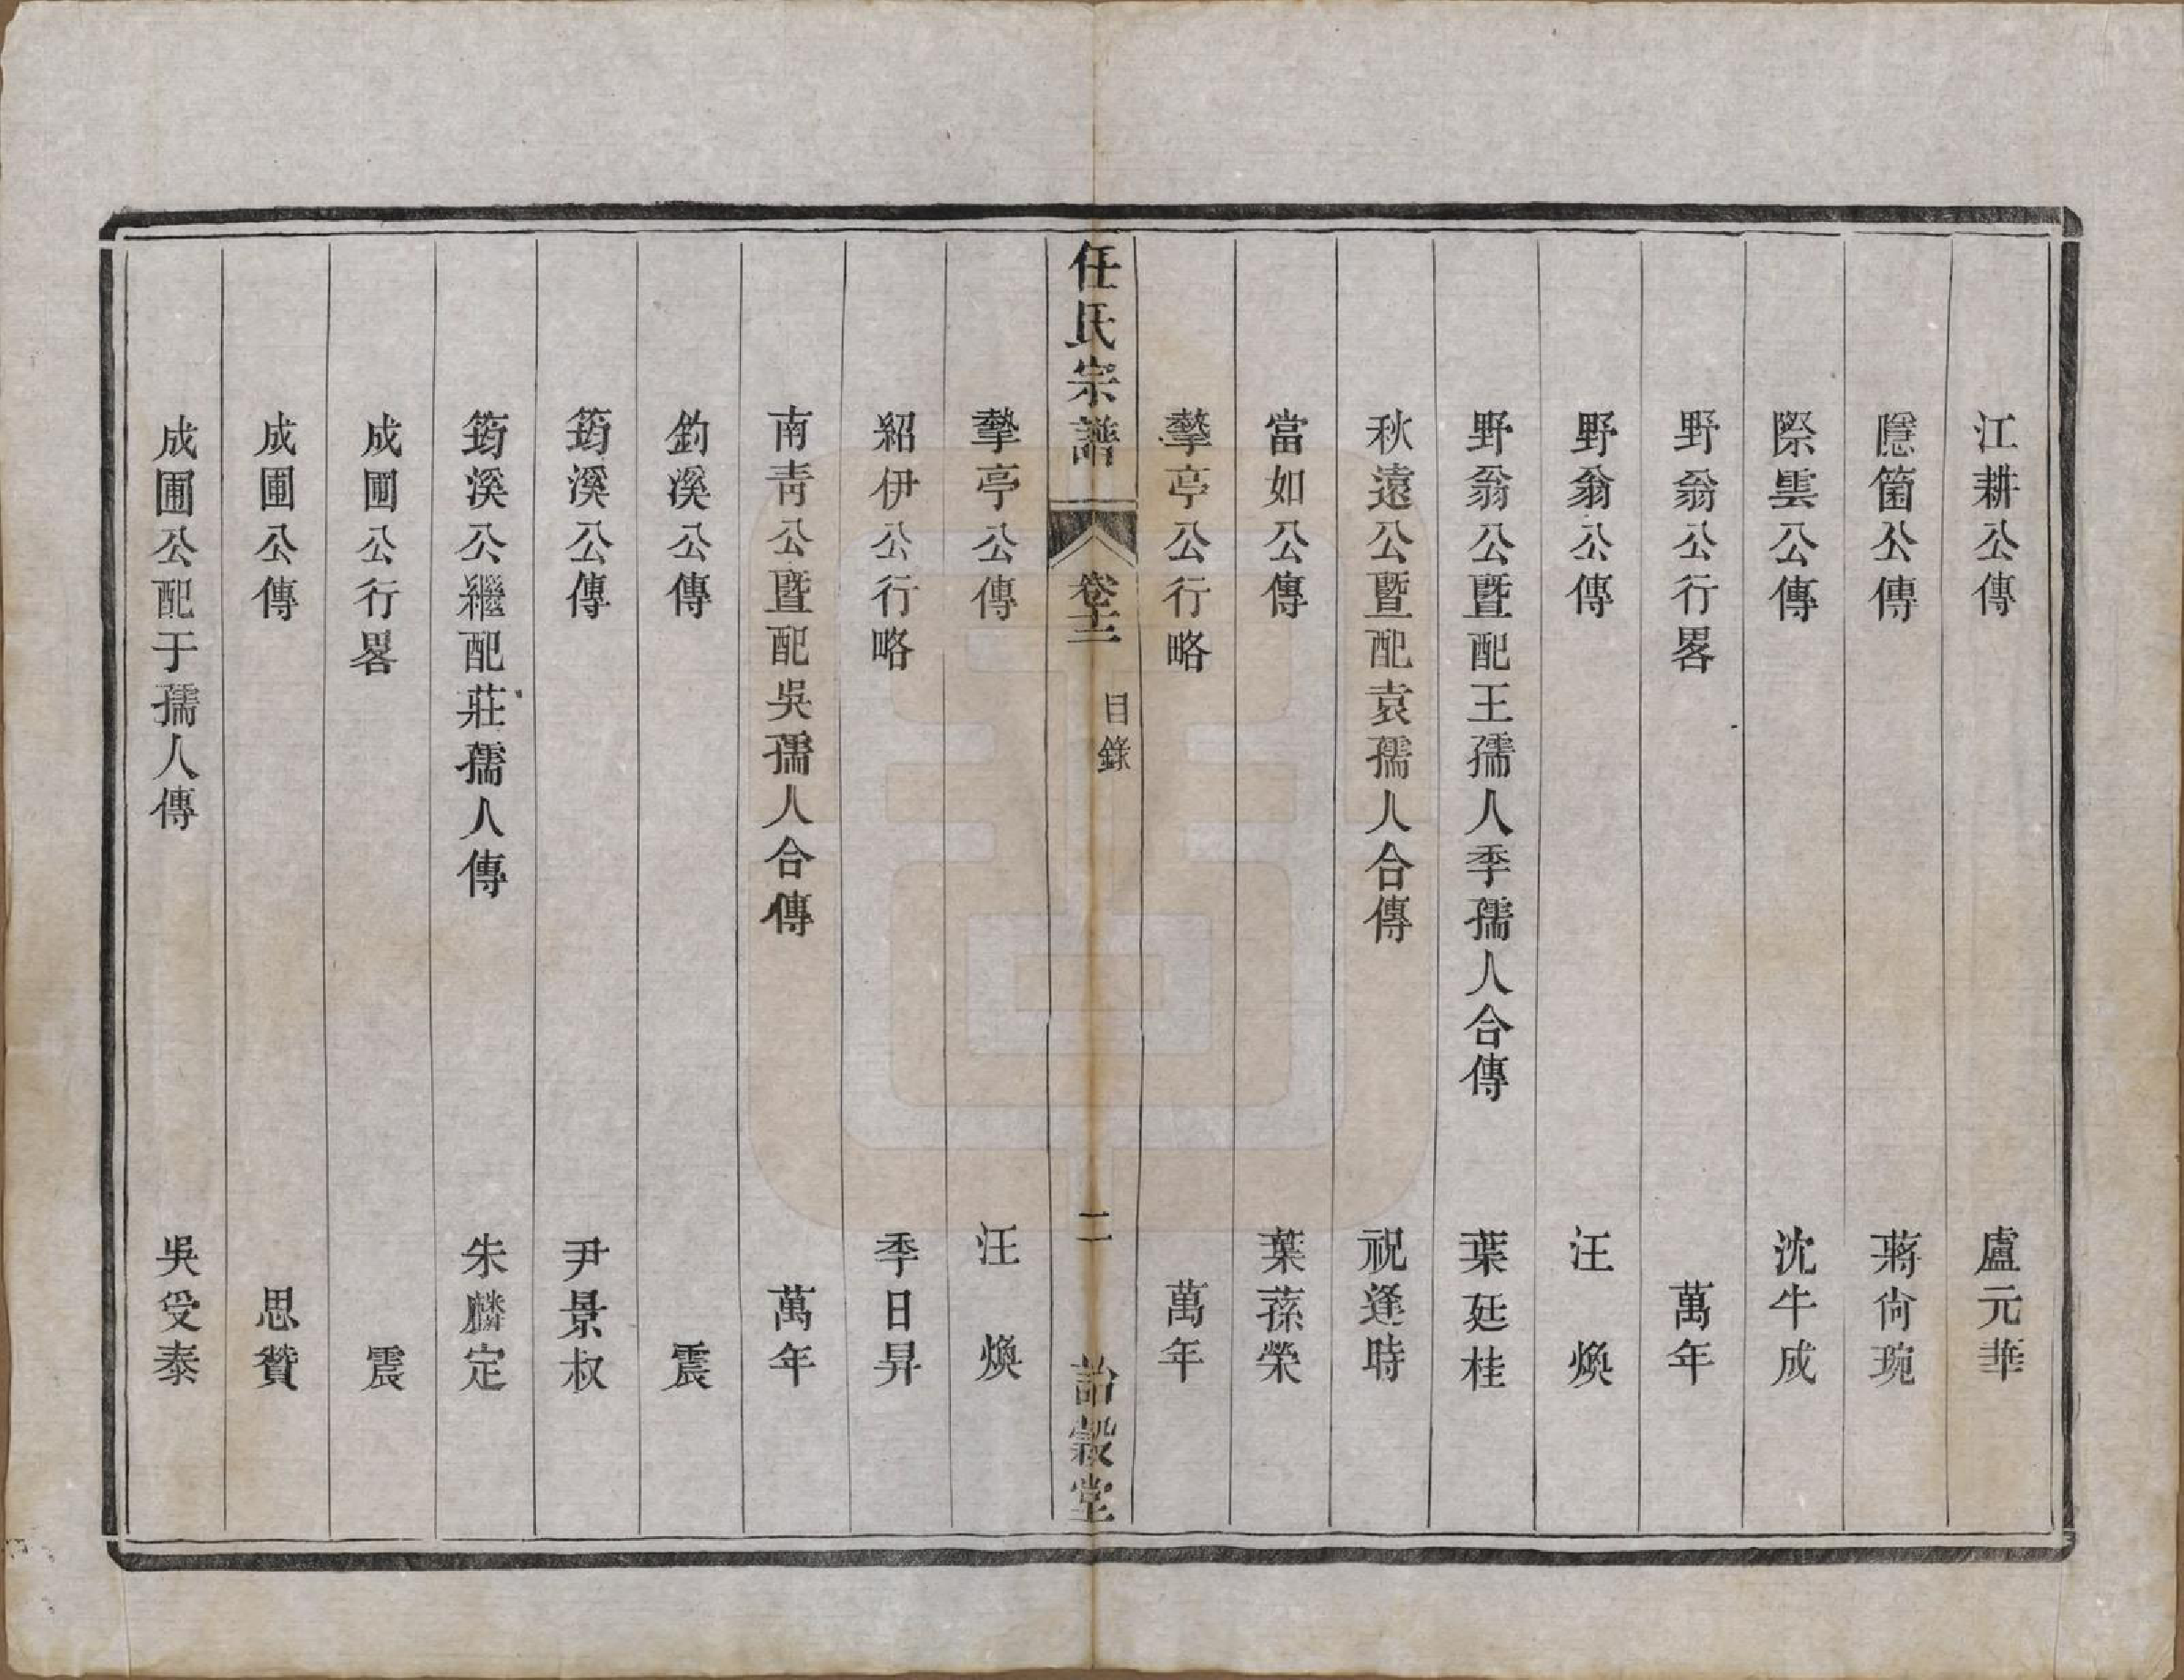 江耕公傳　盧元華
隱箇公傳　蔣尙琬
際雲公傳　沈牛成
野翁公行畧　萬年
野翁公傳　汪煥
野翁公暨配王孺人季孺人合傳　葉廷桂
秋遠公暨配袁孺人合傳　祝逢時
當如公傳　葉蓀榮
擎亭公行略　萬年
任氏宗譜　卷十二　目錄　二　詒穀堂
擎亭公傳　汪煥
紹伊公行略　季日昇
南靑公暨配吳孺人合傳　萬年
釣溪公傳　震
筠溪公傳　尹景叔
筠溪公繼配莊孺人傳　朱麟定
成圃公行畧　震
成圃公傳　思贊
成圃公配于孺人傳　吳受泰